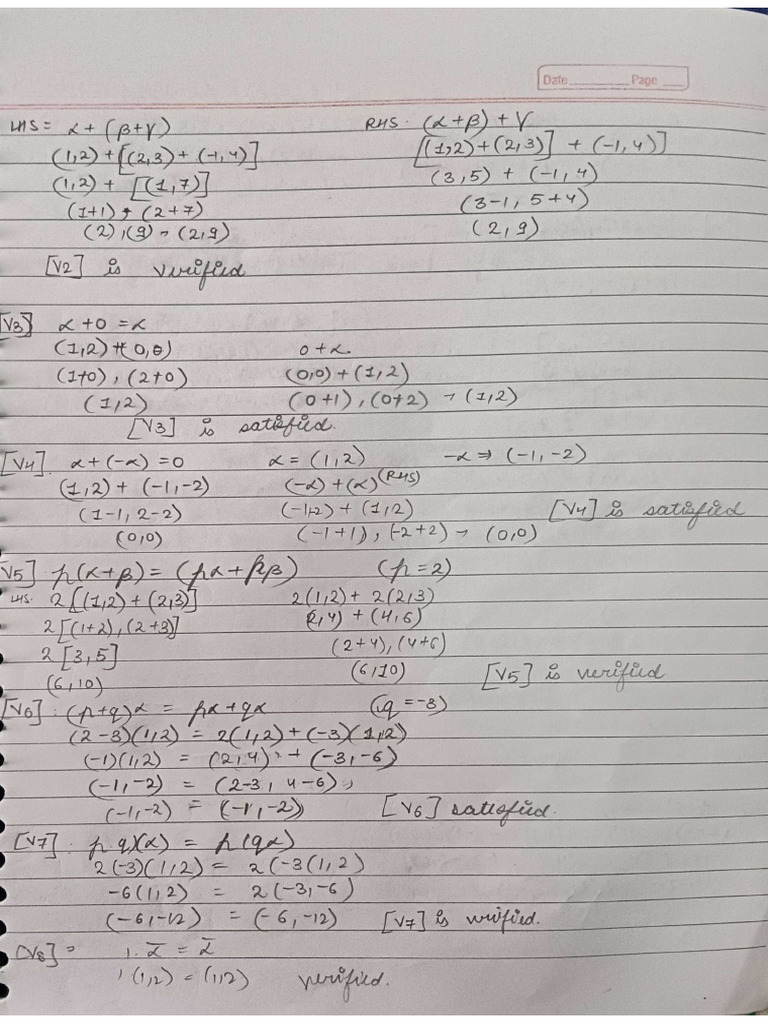 Date Page
LHS = α + (β+γ)
RHS. (α+β) + γ
(1,2) + [(2,3) + (-1,4)]
[(1,2)+(2,3)] + (-1,4)]
(1,2) + [(1,7)]
(3,5) + (-1,4)
(1+1), (2+7)
(3-1, 5+4)
(2),(9) → (2,9)
(2,9)
[V2] is verified
[V3] α+0 = α
(1,2)+(0,0)
0+α
(1+0), (2+0)
(0,0) + (1,2)
(1,2)
(0+1), (0+2) → (1,2)
[V3] is satisfied.
[V4] α+(-α) = 0 α = (1,2) -α ⇒ (-1,-2)
(1,2) + (-1,-2)
(-α) + (α) (RHS)
(1-1, 2-2)
(-1-2) + (1,2)
[V4] is satisfied
(0,0)
(-1+1), (-2+2) → (0,0)
[V5] p(α+β) = (pα+pβ) (p=2)
LHS. 2[(1,2)+(2,3)]
2(1,2) + 2(2,3
2[(1+2),(2+3)]
(2,4) + (4,6)
2[3,5]
(2+4), (4+6)
(6,10)
(6,10)
[V5] is verified
[V6]. (p+q)α = pα+qα (,q=-3)
(2-3)(1,2) = 2(1,2)+(-3)(1,2)
(-1)(1,2) = (2,4) + (-3,-6)
(-1,-2) = (2-3, 4-6),
(-1,-2) = (-1,-2)) [V6] satisfied.
[V7]. p q)(α) = p(qα)
2(-3)(1,2) = 2(-3(1,2)
-6(1,2) = 2(-3,-6)
(-6,-12) = (-6,-12) [V7] is verified.
[V8] = 1.α̅ = α̅
1(1,2) = (1,2) verified.